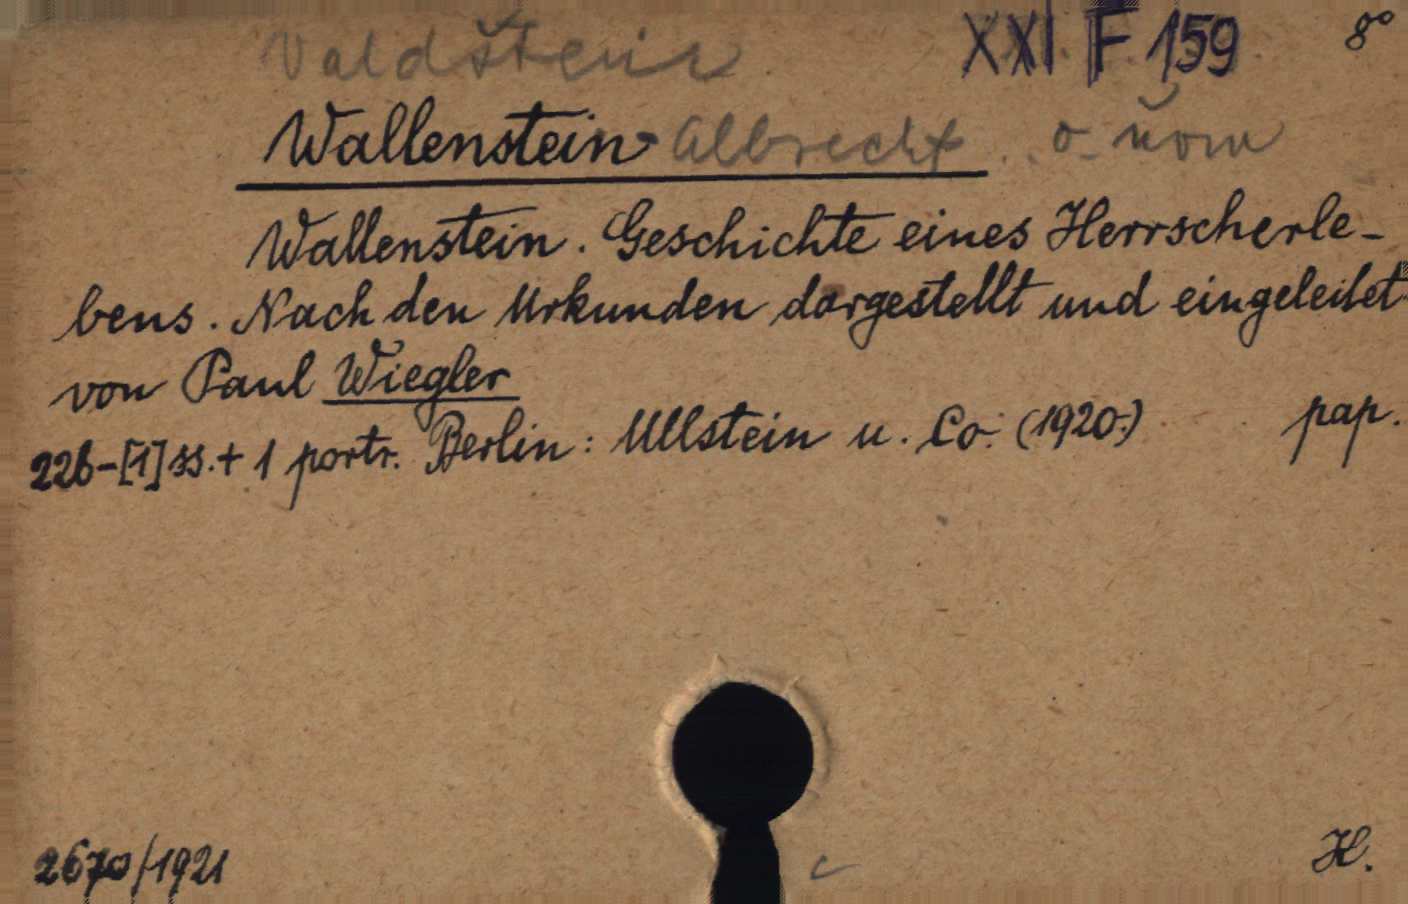 Valdštein XXI F 159 8°
Wallenstein Albrecht. o něm
Wallenstein. Geschichte eines Herrscherle-
bens. Nach den Urkunden dargestellt und eingeleitet
von Paul Wiegler
226-[1] ss. + 1 portr. Berlin: Ullstein u. Co. (1920.) pap.
2670/1921 H.